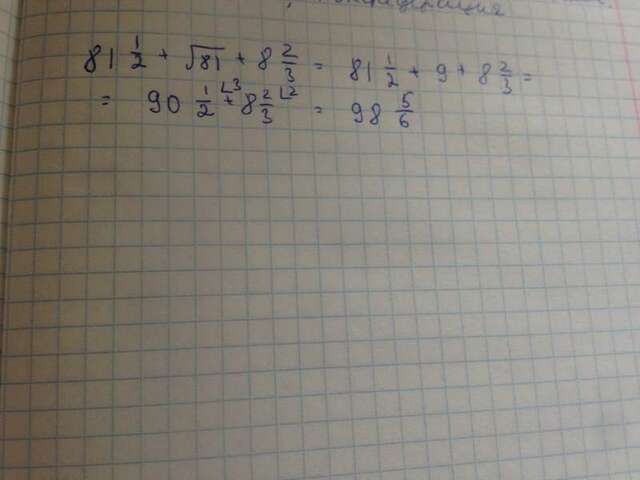 81 1/2 + √81 + 8 2/3 = 81 1/2 + 9 + 8 2/3 =
= 90 1/2 ⌞3 + 8 2/3 ⌞2 = 98 5/6